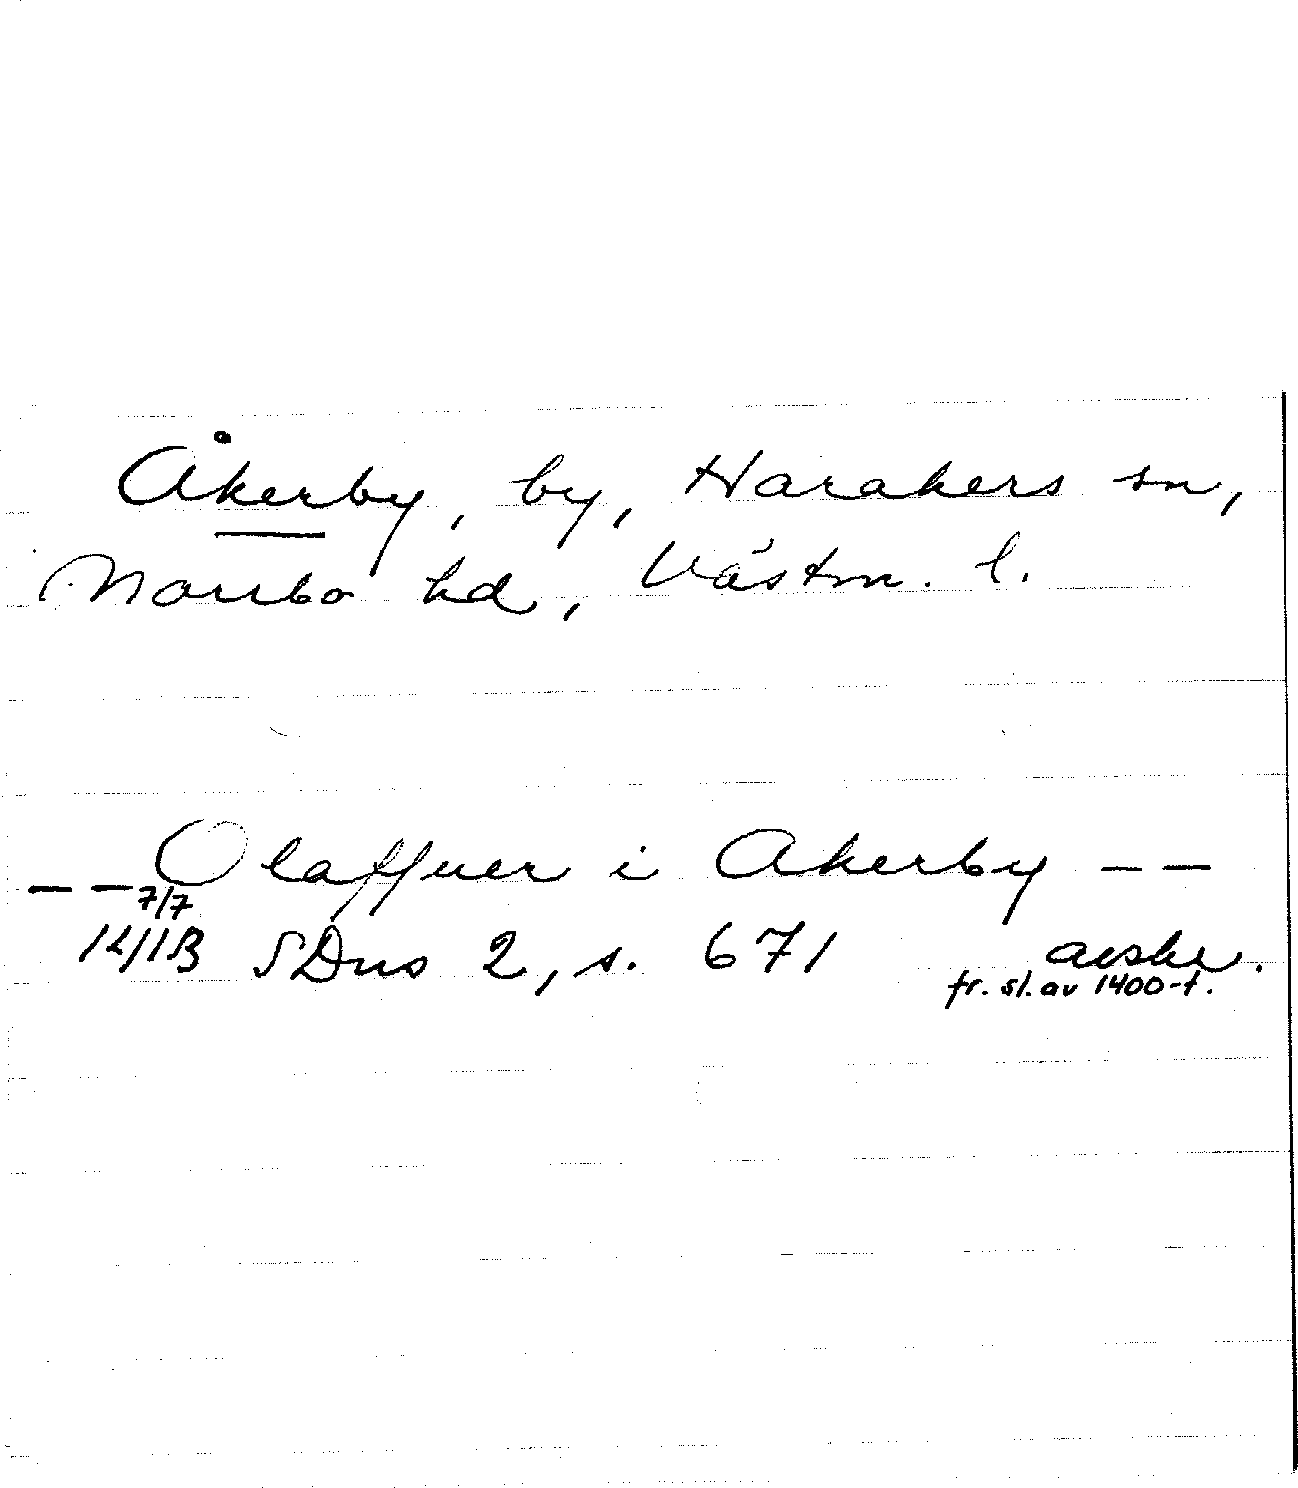 Åkerby, by, Harakers sn,
Norrbo hd, Västm. l.
— — Olaffuer i Akerby — —
7/7
1413 SDns 2, s. 671 avskr.
fr. sl. av 1400-t.